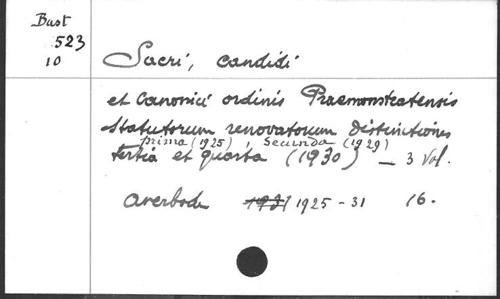 Bust
523
10
Sacri, candidi
et Canonici ordinis Praemonstratensis
Statutorum renovatorum Distinctiones
prima (1925), secunda (1929)
tertia et quarta (1930) — 3 Vol.
Averbode 1931 1925-31 16.